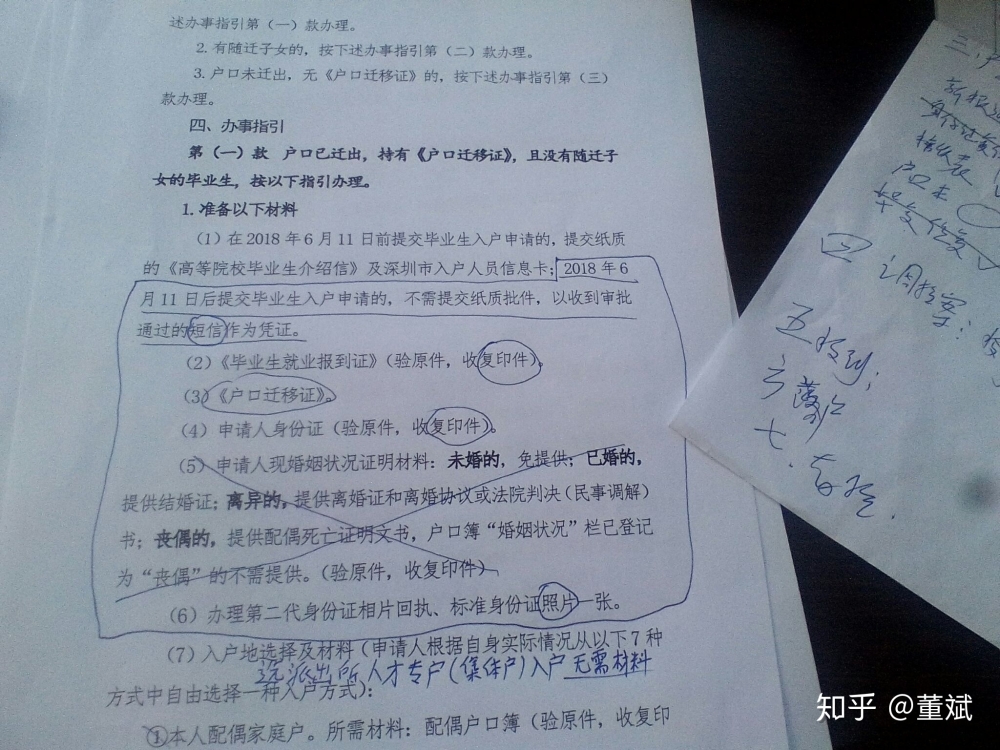 述办事指引第（一）款办理。
2. 有随迁子女的，按下述办事指引第（二）款办理。
3. 户口未迁出，无《户口迁移证》的，按下述办事指引第（三）
款办理。
四、办事指引
第（一）款　户口已迁出，持有《户口迁移证》，且没有随迁子
女的毕业生，按以下指引办理。
1. 准备以下材料
（1）在 2018 年 6 月 11 日前提交毕业生入户申请的，提交纸质
的《高等院校毕业生介绍信》及深圳市入户人员信息卡；2018 年 6
月 11 日后提交毕业生入户申请的，不需提交纸质批件，以收到审批
通过的短信作为凭证。
（2）《毕业生就业报到证》（验原件，收复印件）。
（3）《户口迁移证》。
（4）申请人身份证（验原件，收复印件）。
（5）申请人现婚姻状况证明材料：未婚的，免提供；已婚的，
提供结婚证；离异的，提供离婚证和离婚协议或法院判决（民事调解）
书；丧偶的，提供配偶死亡证明文书，户口簿“婚姻状况”栏已登记
为“丧偶”的不需提供。（验原件，收复印件）
（6）办理第二代身份证相片回执、标准身份证照片一张。
（7）入户地选择及材料（申请人根据自身实际情况从以下 7 种
选派出所人才专户（集体户）入户 无需材料
方式中自由选择一种入户方式）：
①本人配偶家庭户。所需材料：配偶户口簿（验原件，收复印
三、户
接收表
户口本
四 调档案：
五 报到；
六 落户
七、存档.
知乎 @董斌